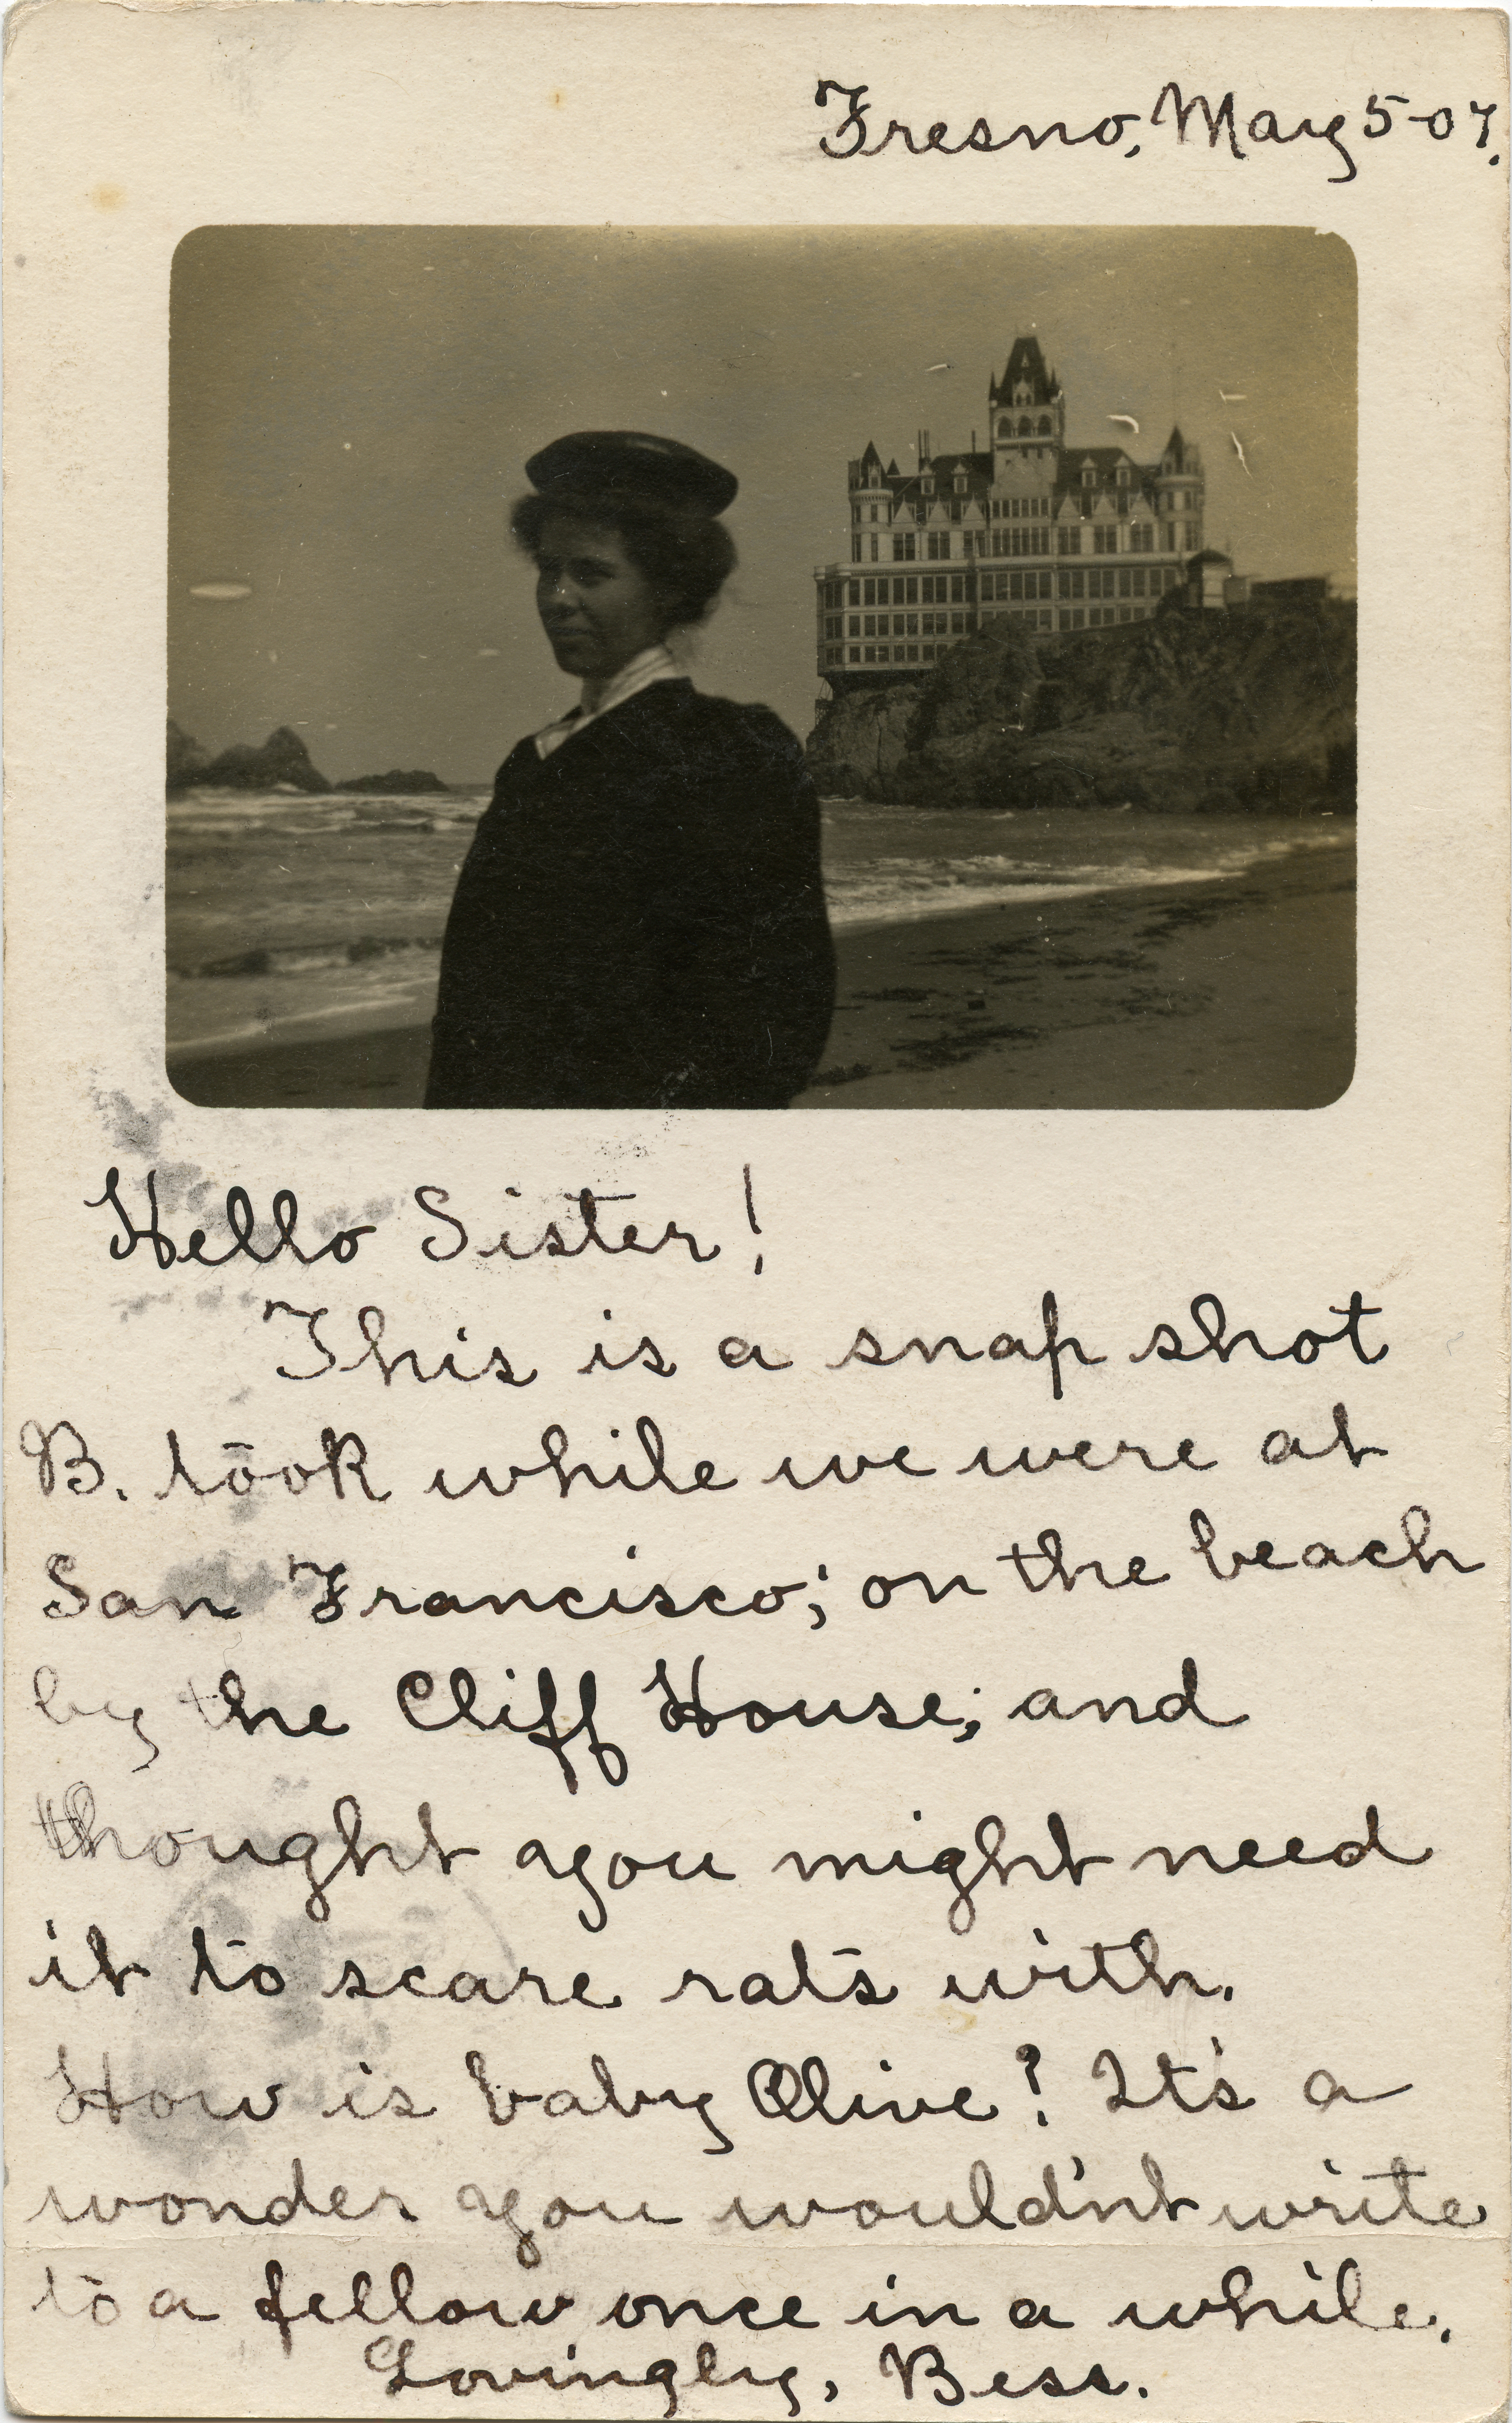 Fresno, May 5-07.
Hello Sister!
This is a snap shot
B. took while we were at
San Francisco; on the beach
by the Cliff House; and
thought you might need
it to scare rats with.
How is baby Olive? It's a
wonder you would'nt write
to a fellow once in a while.
Lovingly, Bess.